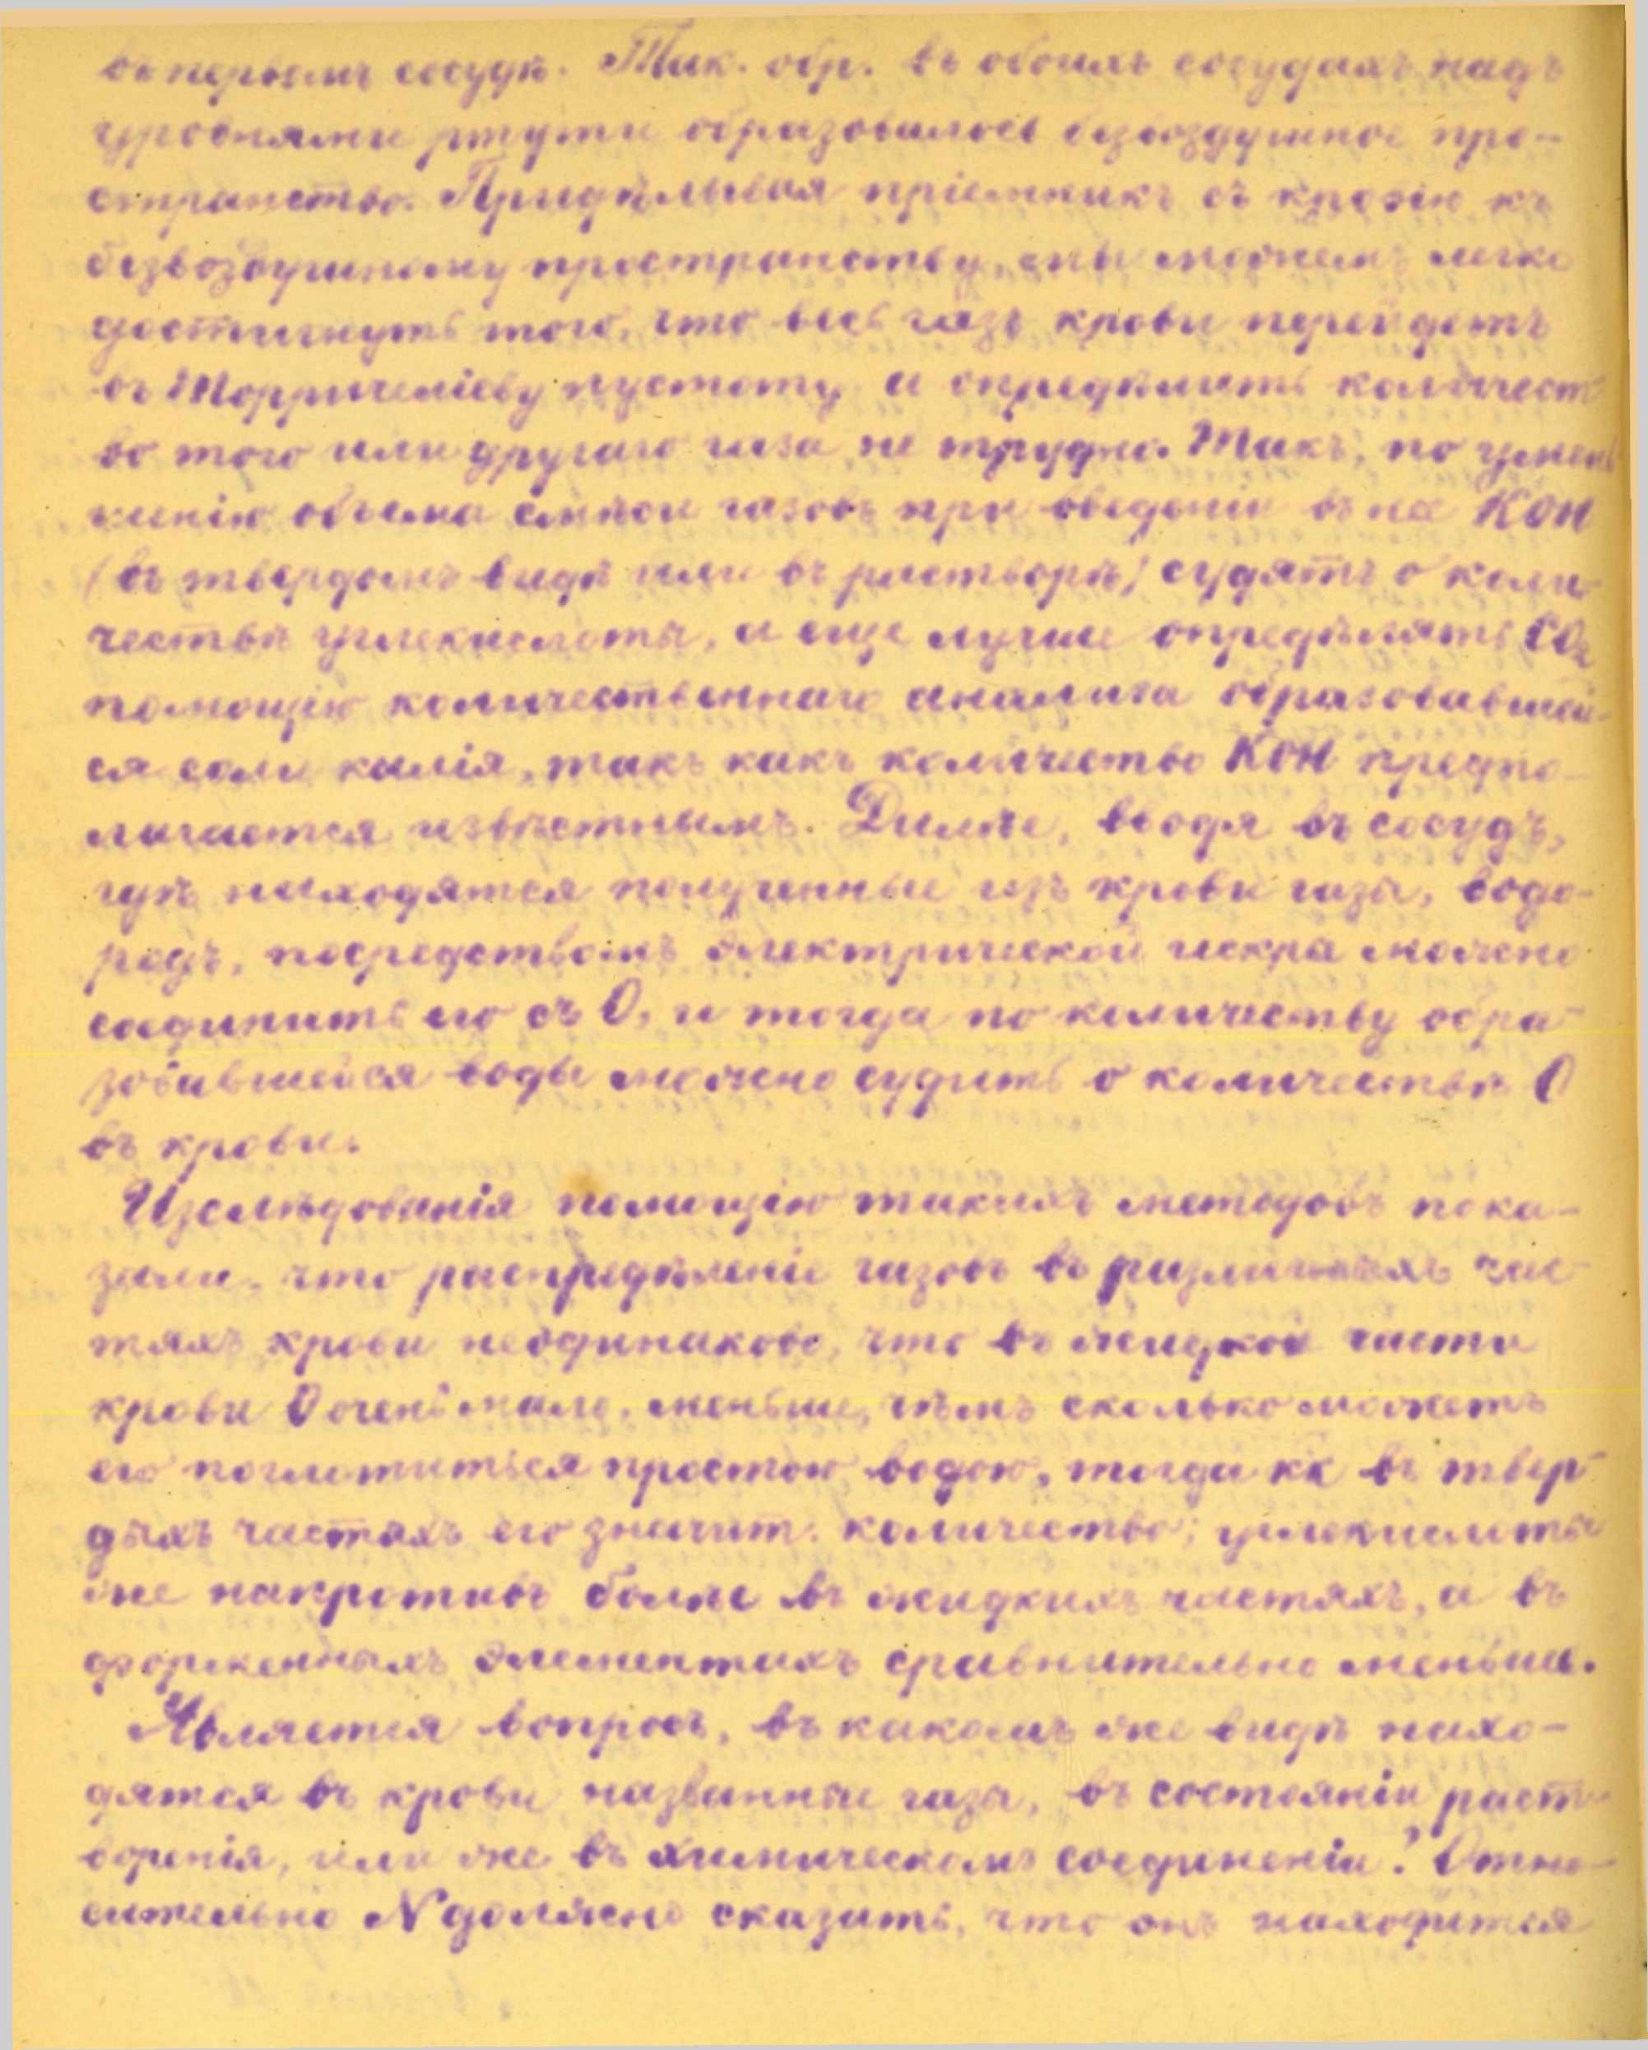 въ первомъ сосудѣ. Так. обр. въ обоихъ сосудахъ надъ
уровнями ртути образовалось безвоздушное про-
странство. Придѣлывая пріемникъ съ кровію къ
безвоздушному пространству, мы можемъ легко
достигнуть того, что весь газъ крови перейдетъ
въ Торричеліеву пустоту, а опредѣлить количест
во того или другаго газа не трудно. Такъ, по умень
шенію объема смѣси газовъ при введеніи въ нее КОН
(въ твердомъ видѣ или въ растворѣ) судятъ о коли-
чествѣ углекислоты, а еще лучше опредѣлять CO2
помощію количественнаго анализа образовавшей-
ся соли калія, такъ какъ количество КОН предпо-
лагается извѣстнымъ. Далѣе, вводя въ сосудъ,
гдѣ находятся полученные изъ крови газы, водо-
родъ, посредствомъ электрической искры можно
соединить его съ О, и тогда по количеству обра-
зовавшейся воды можно судить о количествѣ О
въ крови.
Изслѣдованія помощію такихъ методовъ пока-
зали, что распредѣленіе газовъ въ различныхъ час-
тяхъ крови неодинаково, что въ жидкой части
крови О очень мало, меньше, чѣмъ сколько можетъ
его поглотиться простою водою, тогда кк въ твер-
дыхъ частяхъ его значит. количество; углекислоты
же напротивъ болѣе въ жидкихъ частяхъ, а въ
форменныхъ элементахъ сравнительно меньше.
Является вопросъ, въ какомъ же видѣ нахо-
дятся въ крови названные газы, въ состояніи раст-
воренія, или же въ химическомъ соединеніи? Отно-
сительно N должно сказать, что онъ находится